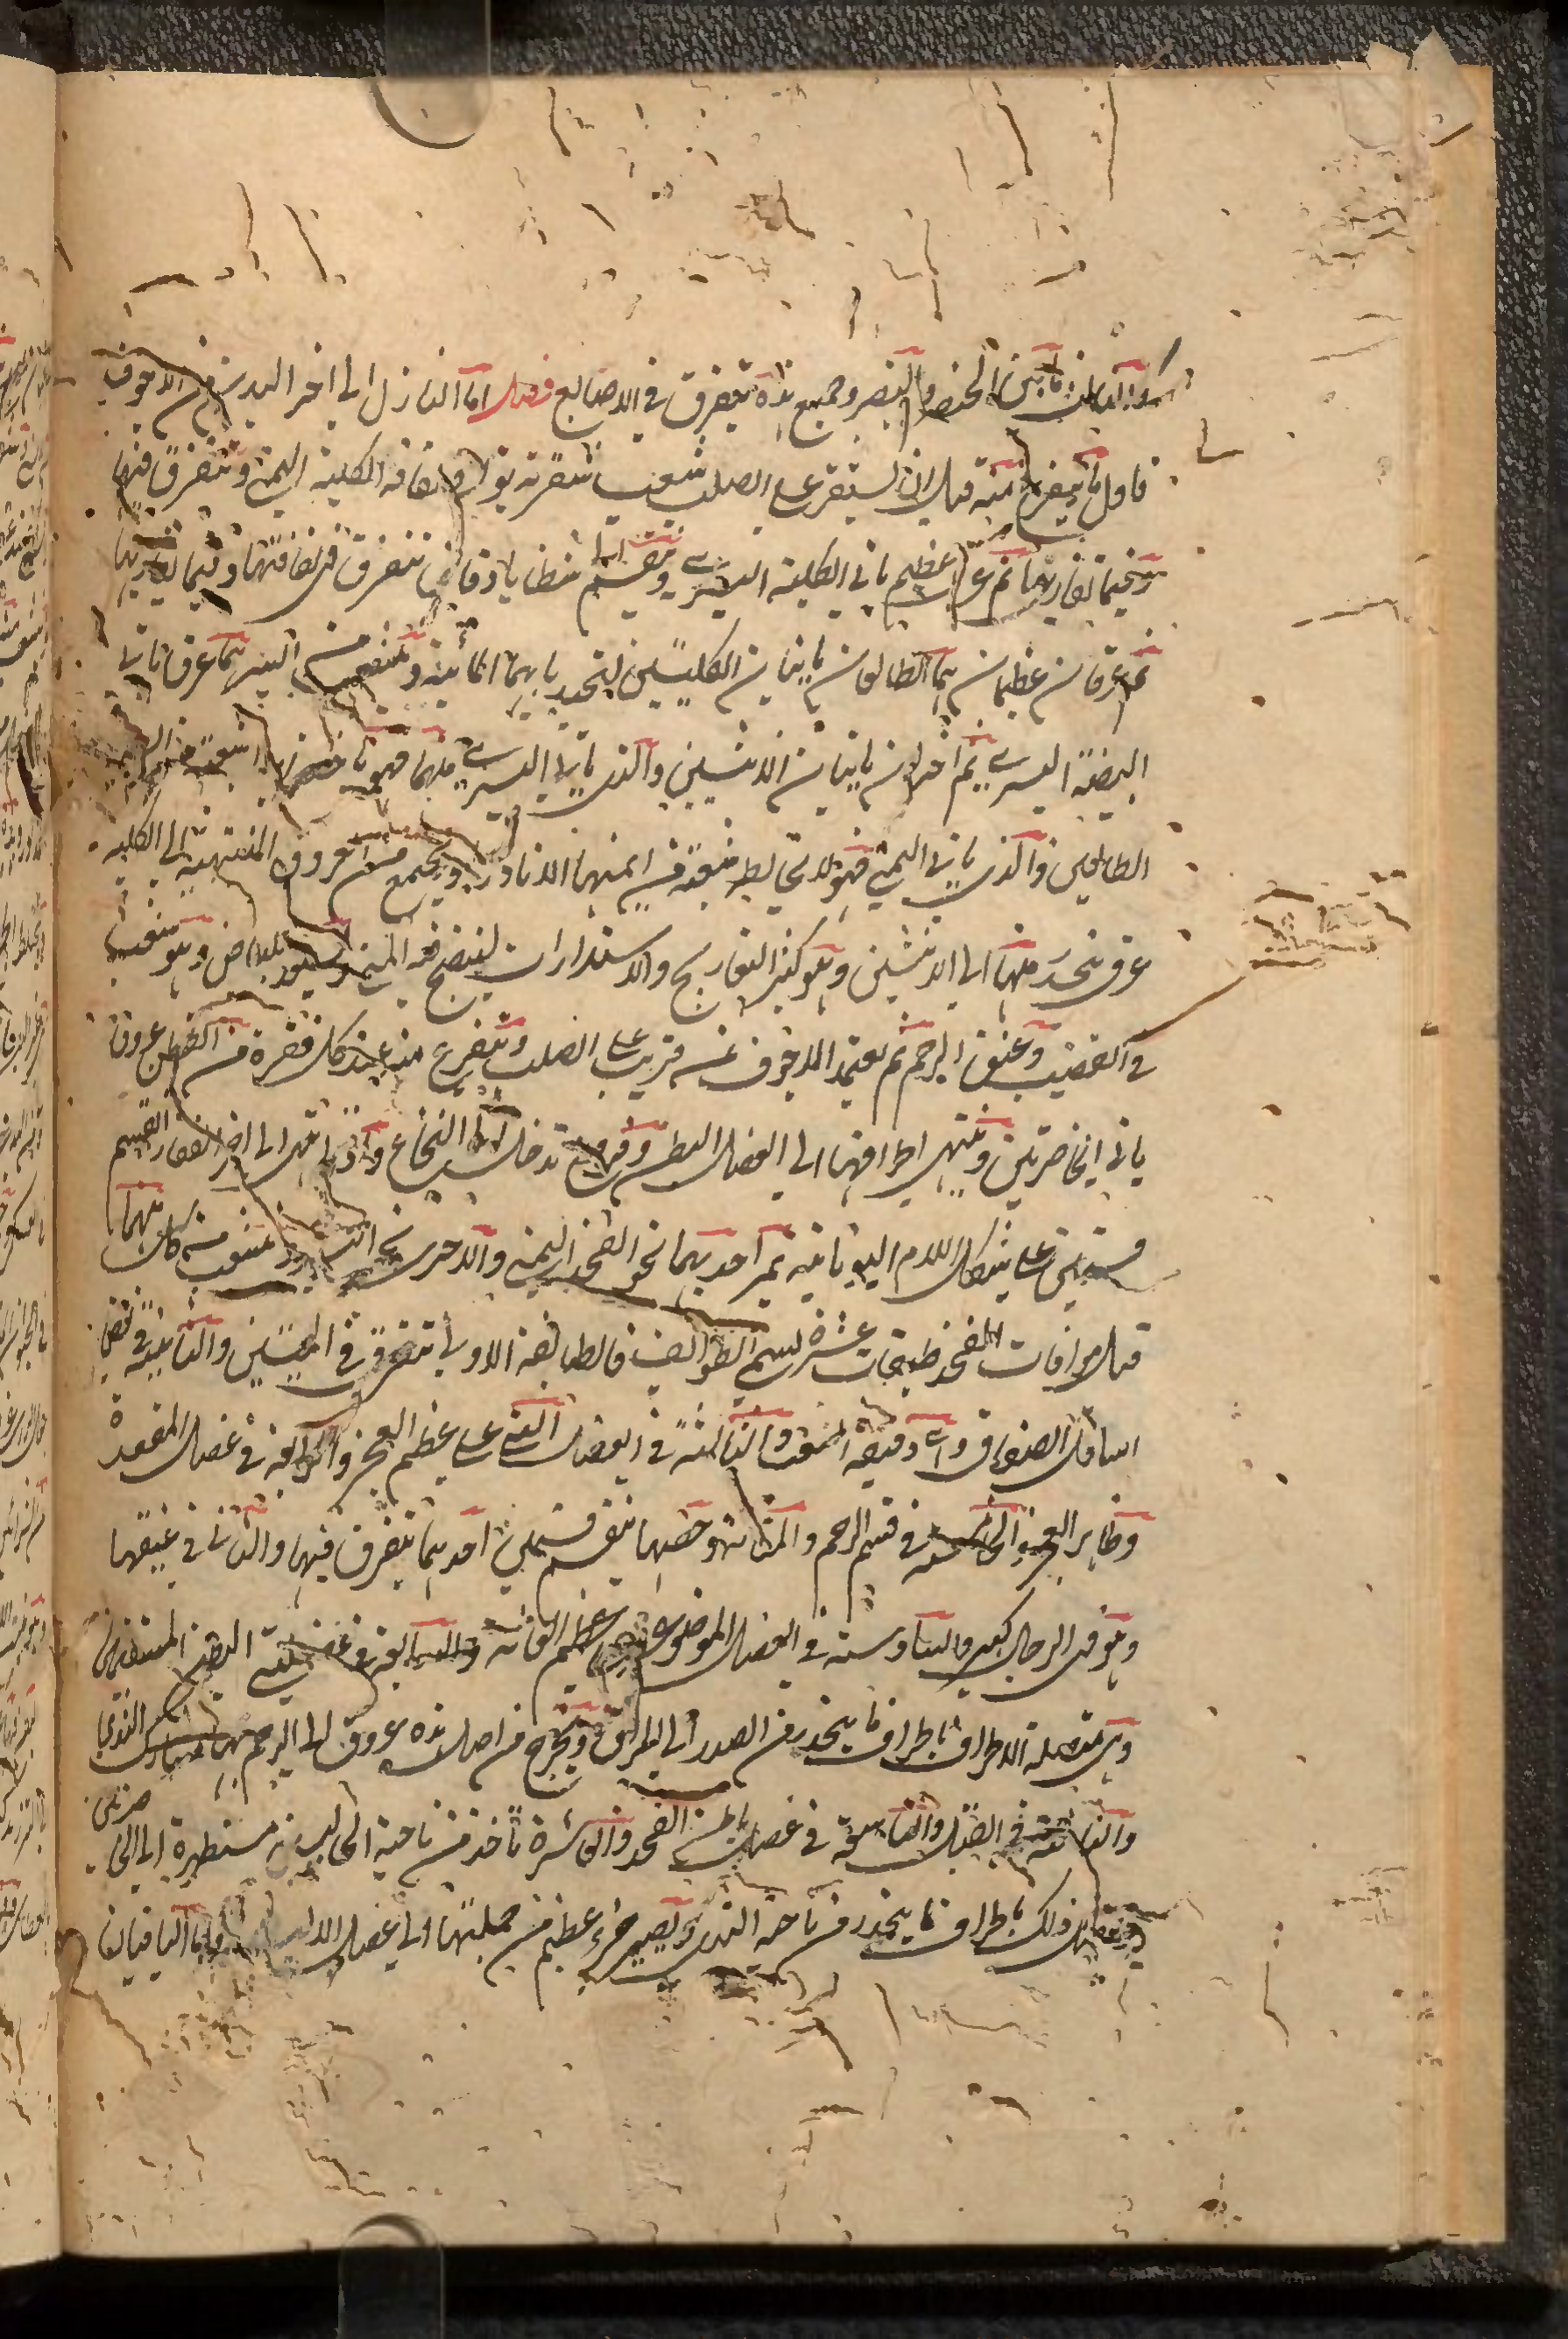 والثالث ما بين الخنصر والبنصر وجميع هذه تتفرق في الاصابع فصل اما النازل الى اخر البدن من الاجوف
فاول ما يتفرع منه قبل ان يستقر على الصلب شعب شعرية توافي لفافة الكلية اليمنى وتتفرق فيها
وفيما تقاربها ثم عرق عظيم ياتي الكلية اليسرى وينقسم شظايا دقاقا تتفرق في لفافتها وفيما يقاربها
ثم عرقان عظيمان هما الطالعان ياتيان الكليتين لتجذبا بهما المائية وتتشعب من ايسرهما عرق ياتي
البيضة اليسرى ثم اخران ياتيان الانثيين والذي ياتي اليسرى منهما فهو ياخذ شعبة من
الطالعين والذي ياتي اليمنى فهو لا يخالطه شعبة من ايمنهما الا نادرا ويجمع من عروق المنتهية الى الكلية
عرق ينحدر منها الى الانثيين وهو كثير التعاريج والاستدارات لينضج فيه المني ويبيض وهو يتشعب
في القضيب وعنق الرحم ثم يعتمد الاجوف عن قريب على الصلب ويتفرع منه عند كل فقرة من القطن عروق
ياتي الخاصرتين وتنتهي اطرافها الى العضل البطن وفروع تدخل الى النخاع واذا انتهى الى اخر الفقار انقسم
قسمين على شكل اللام اليونانية يمر احدهما نحو الفخذ اليمنى والاخر نحو اليسرى ويتشعب من كل منهما
قبل موافاة الفخذ طبقات عشرة يسمى الطوائف فالطائفة الاولى تتفرق في المتنين والثانية في بعض
اسافل الصفاق وهي دقيقة الشعب والثالثة في العضل التي على عظم العجز والرابعة في عضل المقعدة
وظاهر العجز والخامسة في فم الرحم والمثانة وحصتها ينقسم قسمين احدهما يتفرق فيها والثاني في عنقها
وهو في الرجال كبير والسادسة في العضل الموضوع على عظم العانة والسابعة في عضلتي البطن المستقيمين
وهي متصلة الاطراف باطراف ما ينحدر من الصدر الى المراق وتخرج من اصل هذه عروق الى الرحم بها يشارك الثدي
والثامنة في القبل والتاسعة في عضل باطن الفخذ والعاشرة تاخذ من ناحية الحالب مستظهرة الى الخاصرتين
ويتصل ذلك باطراف ما ينحدر من ناحية الثدي ويصير جزء عظيم من جملتها الى عضل الانثيين واما الباقيان